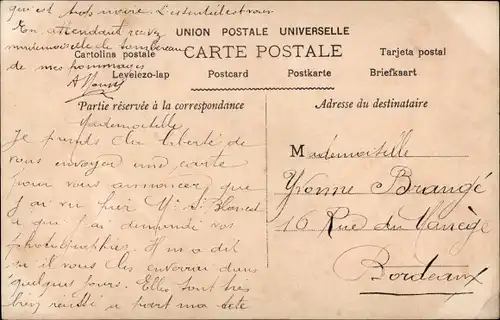 qui est trop noire. L'essentiel est
En attendant recevez
mademoiselle de
de mes hommages
UNION POSTALE UNIVERSELLE
CARTE POSTALE
Cartolina postale
Tarjeta postal
Levelezo-lap
Postcard
Postkarte
Briefkaart
Partie réservée à la correspondance
Adresse du destinataire
Mademoiselle
Je prends la liberté de
vous envoyer une carte
pour vous annoncer que
j'ai vu hier Mr
a qui j'ai demandé vos
photographies. Il m'a dit
qu'il vous les enverrai dans
quelques jours. Elles sont très
bien réussi a part ma tete
Mademoiselle
Yvonne Brangé
16 Rue du Manège
Bordeaux